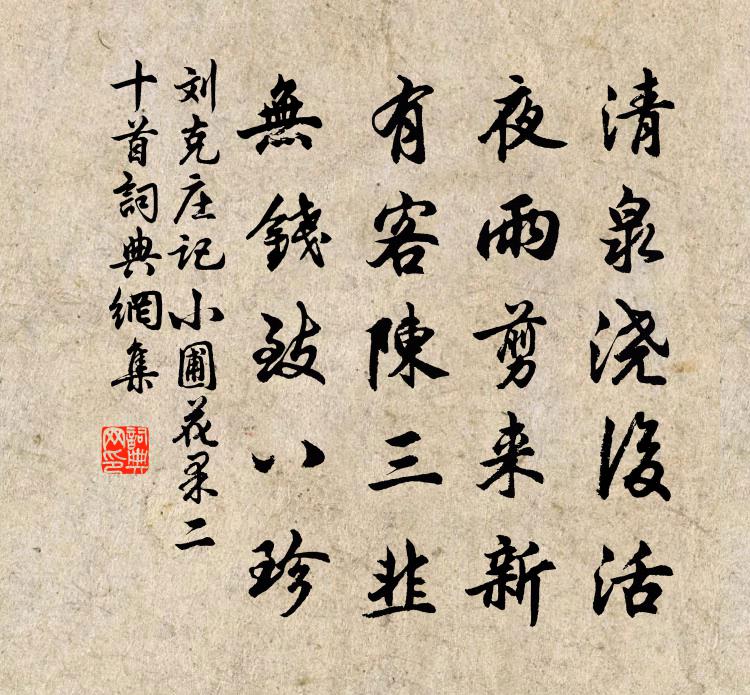 清泉浇後活
夜雨剪来新
有客陳三韭
無錢致八珍
刘克庄記小圃花果二
十首詞典網集
詞典网印